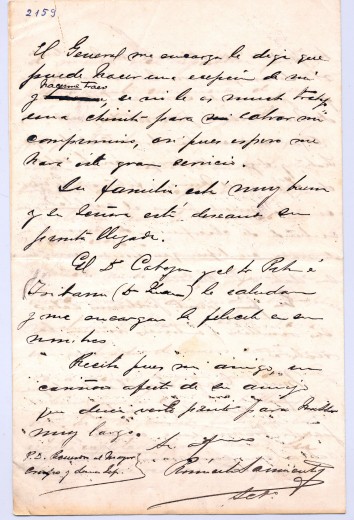 2159
El General me encarga le diga que
puede hacer una excepción de mí
y hacerme traer, si no le es mucho trabajo
una chinita para salvar mi
compromiso, así pues espero me
hará este gran servicio.
Su familia está muy buena
y la Señora está deseando su
pronta llegada.
El Dr y el Dr
le saludan
y me encargan lo felicite en su
nombre
Reciba pues mi amigo, un
cariñoso afecto de su amigo
que desea verle pronto para
muy largo.
P.D. al Mayor
y demás